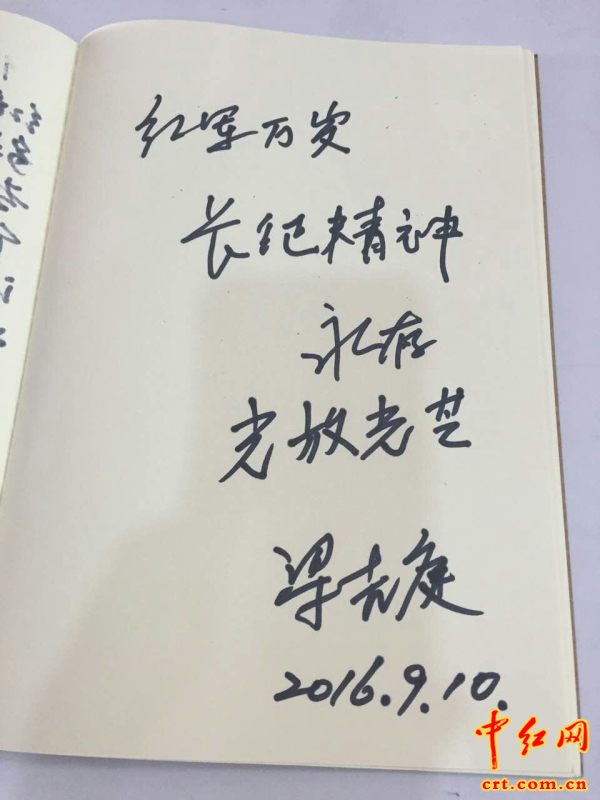 红军万岁
长征精神
永存
光放光芒
梁
2016.9.10.
中红网
crt.com.cn